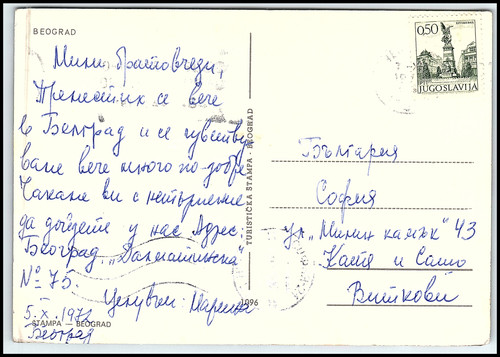 BEOGRAD
Мили братовчеди,
се вече
в Белград и се чувству
ваме вече много по-добре
Чакаме ви с нетърпение
да дойдете у нас Адрес:
Београд „Далматинска
№ 75.
Целувки
5.X.1972
Београд
STAMPA — BEOGRAD
TURISTIČKA STAMPA - BEOGRAD
1096
0,50
JUGOSLAVIJA
България
София
ул „Милин камък" 43
Катя и Сашо
Виткови